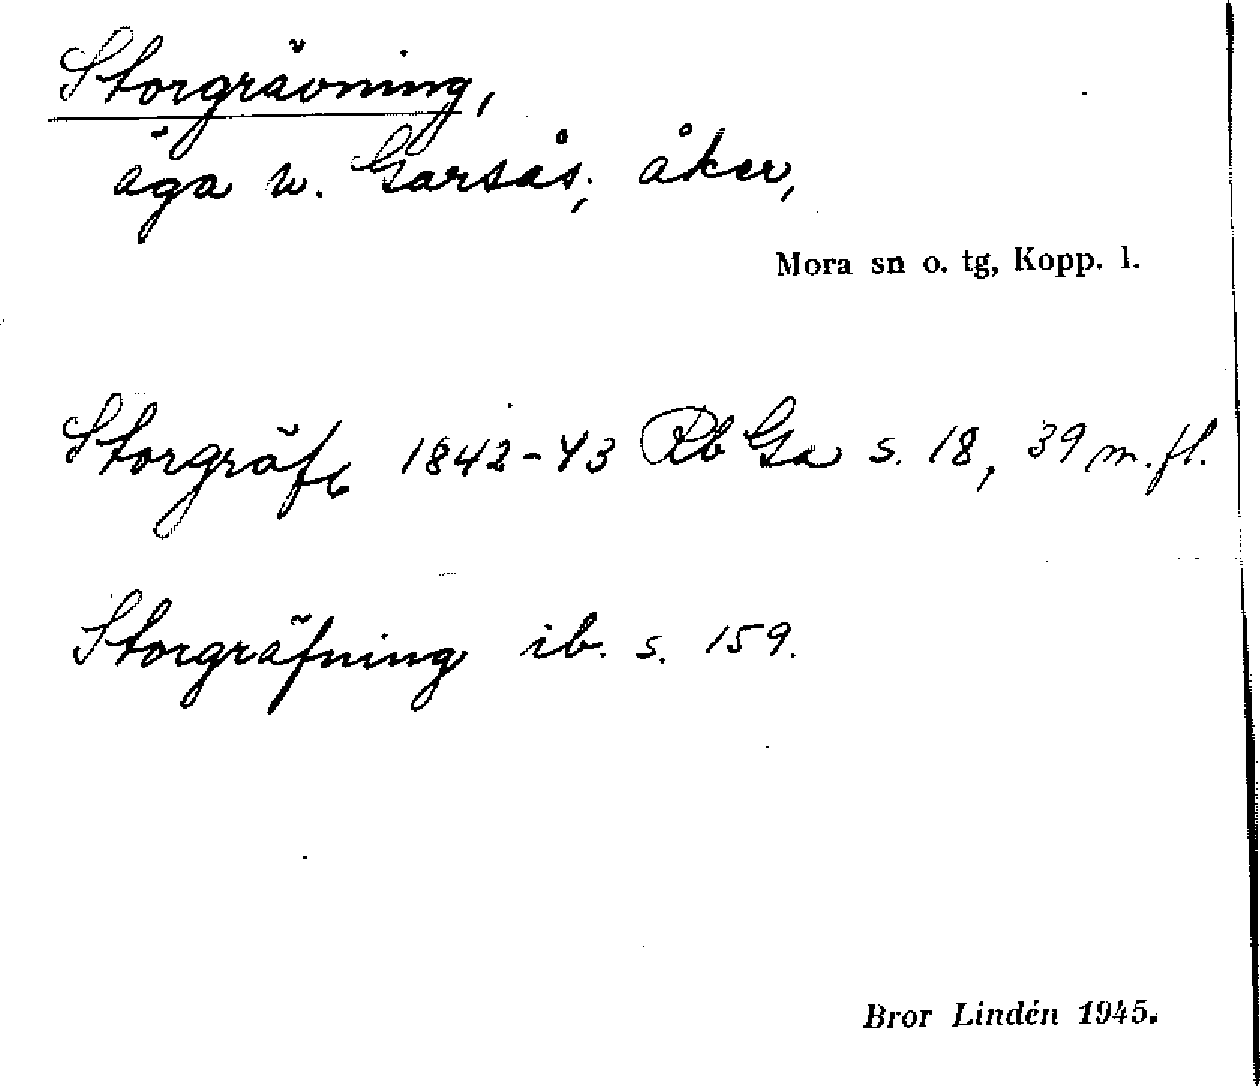 Storgrävning,
äga w. Garsås; åker,
Mora sn o. tg, Kopp. l.
Storgräf 1842-43 Rb Ga s. 18, 39 m. fl.
Storgräfning ib. s. 159.
Bror Lindén 1945.